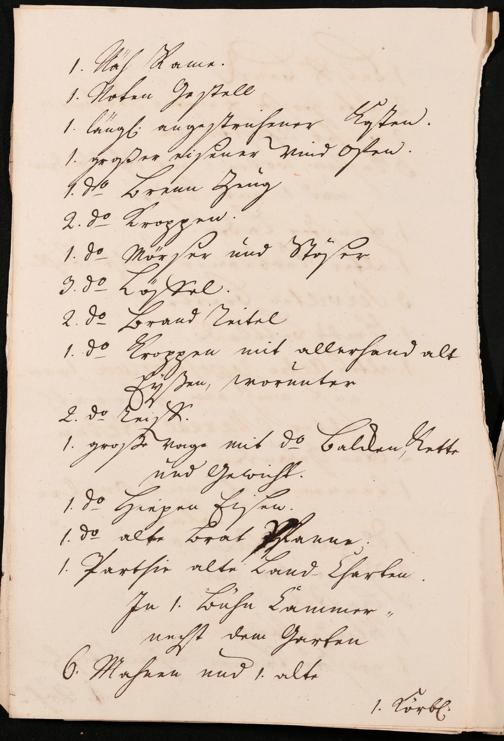 1. Näh Rame.
1. Noten Gestell
1. längl. angestrichener Kasten.
1. großer eisener Wind Ofen.
1. do Brenn Zeug
2. do Kroppen.
1. do Mörser und Stößer
3. do Löffel.
2. do Brand
1. do Kroppen mit allerhand alt
Eyßen, worunter
2. do
1. große Wage mit do Balcken, Kette
und Gewicht.
1. do Hiepen Eysen.
1. do alte Brat Pfanne.
1. Parthie alte Land Charten.
In 1. Bühn Cammer
nechst dem Garten
6. Mahnen und 1. alte
1. Körbl.